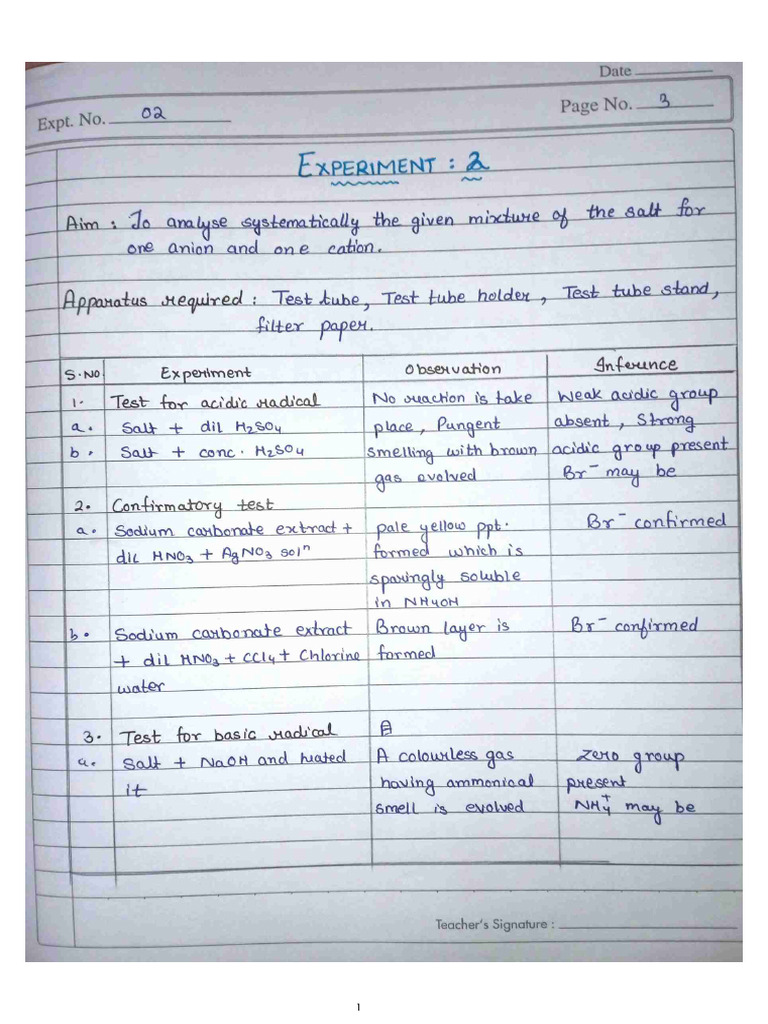 Date
Expt. No. 02
Page No. 3
EXPERIMENT : 2
Aim : To analyse systematically the given mixture of the salt for
one anion and one cation.
Apparatus required : Test tube, Test tube holder, Test tube stand,
filter paper.
S.NO Experiment Observation Inference
1. Test for acidic radical No reaction is take Weak acidic group
a. Salt + dil H2SO4 place, Pungent absent, Strong
b. Salt + conc. H2SO4 smelling with brown acidic group present
gas evolved Br⁻ may be
2. Confirmatory test
a. Sodium carbonate extract + pale yellow ppt. Br⁻ confirmed
dil HNO3 + AgNO3 solⁿ formed which is
sparingly soluble
in NH4OH
b. Sodium carbonate extract Brown layer is Br⁻ confirmed
+ dil HNO3 + CCl4 + Chlorine formed
water
3. Test for basic radical
a. Salt + NaOH and heated A colourless gas Zero group
it having ammonical present
smell is evolved NH4⁺ may be
Teacher's Signature :
1